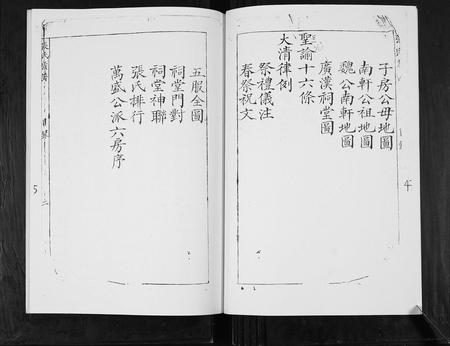 子房公母地圖
南軒公祖地圖
魏公南軒地圖
廣漢祠堂圖
聖諭十六條
大清律例
祭禮儀注
春祭祝文
4
五服全圖
祠堂門對
祠堂神聯
張氏排行
萬盛公派六房序
5